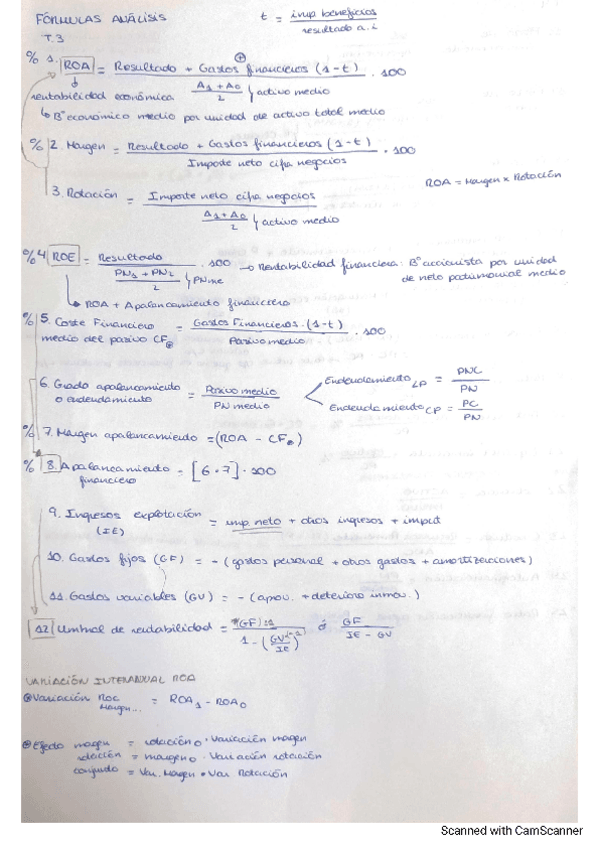 FÓRMULAS ANÁLISIS t = imp beneficios / resultado a.i
T.3
% 1. ROA = Resultado + Gastos financieros (1-t) / (A1 + A0 / 2) } activo medio . 100
rentabilidad económica
↳ Bº económico medio por unidad de activo total medio
% 2. Margen = Resultado + Gastos financieros (1-t) / Importe neto cifra negocios . 100
ROA = Margen x Rotación
3. Rotación = Importe neto cifra negocios / (A1 + A0 / 2) } activo medio
% 4. ROE = Resultado / (PN1 + PN2 / 2) } PNme . 100 → Rentabilidad financiera: Bº accionista por unidad
de neto patrimonial medio
↳ ROA + Apalancamiento financiero
% 5. Coste Financiero = Gastos Financieros . (1-t) / Pasivo medio . 100
medio del pasivo CF
6. Grado apalancamiento = Pasivo medio / PN medio
o endeudamiento
Endeudamiento LP = PNC / PN
Endeudamiento CP = PC / PN
% 7. Margen apalancamiento = (ROA - CF)
% 8. Apalancamiento = [6 . 7] . 100
financiero
9. Ingresos explotación = imp neto + otros ingresos + imput
(IE)
10. Gastos fijos (GF) = - (gastos personal + otros gastos + amortizaciones)
11. Gastos variables (GV) = - (aprov. + deterioro inmov.)
12 Umbral de rentabilidad = (GF) / 1 - (GV / IE) ó GF / IE - GV
VARIACIÓN INTERANUAL ROA
Variación ROA = ROA1 - ROA0
Margen...
Efecto margen = rotación0 . Variación margen
rotación = margen0 . Variación rotación
conjunto = Var. Margen . Var Rotación
Scanned with CamScanner